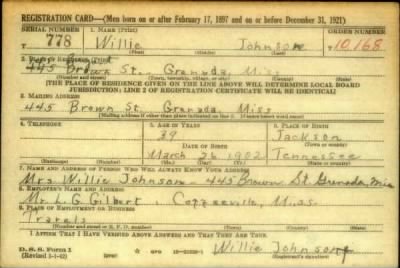 REGISTRATION CARD—(Men born on or after February 17, 1897 and on or before December 31, 1921)
SERIAL NUMBER 1. NAME (Print) ORDER NUMBER
778 Willie Johnson 10,168
(First) (Middle) (Last)
2. PLACE OF RESIDENCE (Print)
445 Brown St. Grenada, Miss
(Number and street) (Town, township, village, or city) (County) (State)
[THE PLACE OF RESIDENCE GIVEN ON THE LINE ABOVE WILL DETERMINE LOCAL BOARD
JURISDICTION; LINE 2 OF REGISTRATION CERTIFICATE WILL BE IDENTICAL]
3. MAILING ADDRESS
445 Brown St. Grenada, Miss
[Mailing address if other than place indicated on line 2. If same insert word same]
4. TELEPHONE 5. AGE IN YEARS 6. PLACE OF BIRTH
39 Jackson
DATE OF BIRTH (Town or county)
March 26 1902 Tennessee
(Exchange) (Number) (Mo.) (Day) (Yr.) (State or country)
7. NAME AND ADDRESS OF PERSON WHO WILL ALWAYS KNOW YOUR ADDRESS
Mrs. Willie Johnson - 445 Brown St. Grenada, Miss
8. EMPLOYER'S NAME AND ADDRESS
Mr. L. G. Gilbert, Miss.
9. PLACE OF EMPLOYMENT OR BUSINESS
Travels
(Number and street or R. F. D. number) (Town) (County) (State)
I AFFIRM THAT I HAVE VERIFIED ABOVE ANSWERS AND THAT THEY ARE TRUE.
D. S. S. Form 1
(Revised 1-1-42) (over) Willie Johnson
(Registrant's signature)